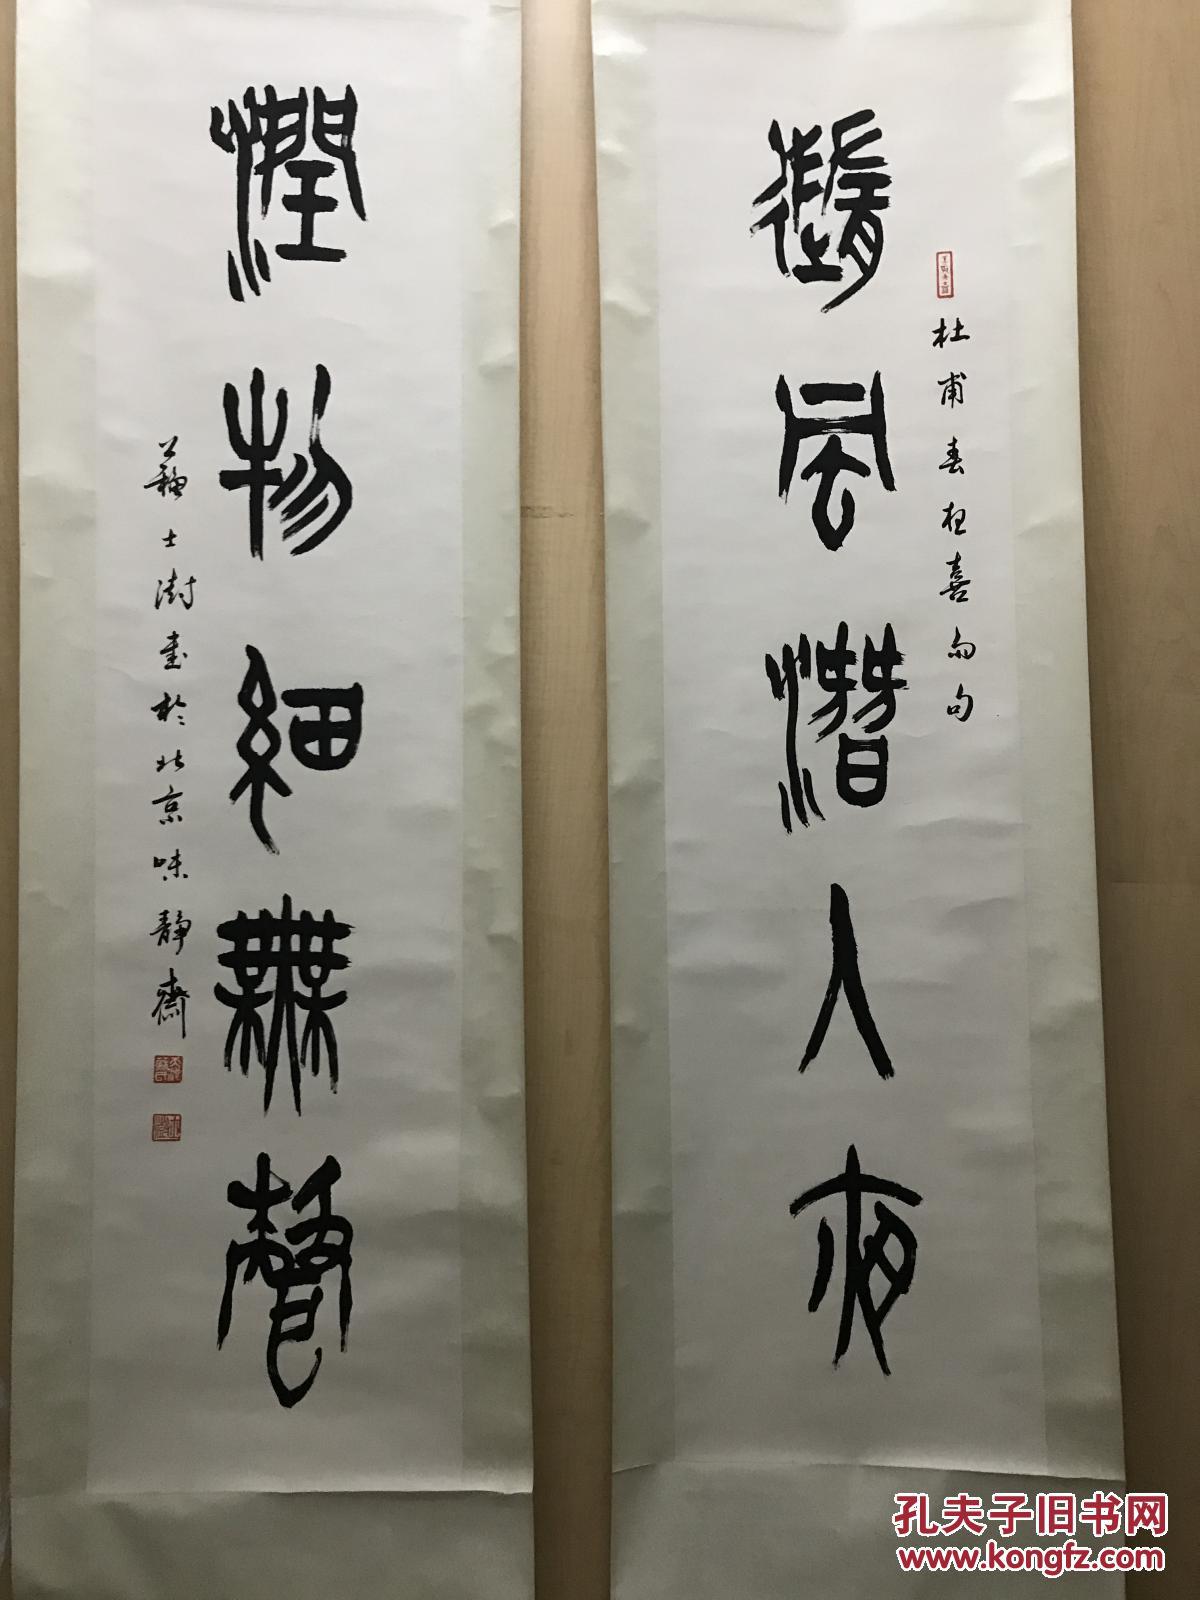 隨風潛入夜
杜甫春夜喜雨句
潤物細無聲
蘇士澍書於北京味靜齋
孔夫子旧书网
www.kongfz.com